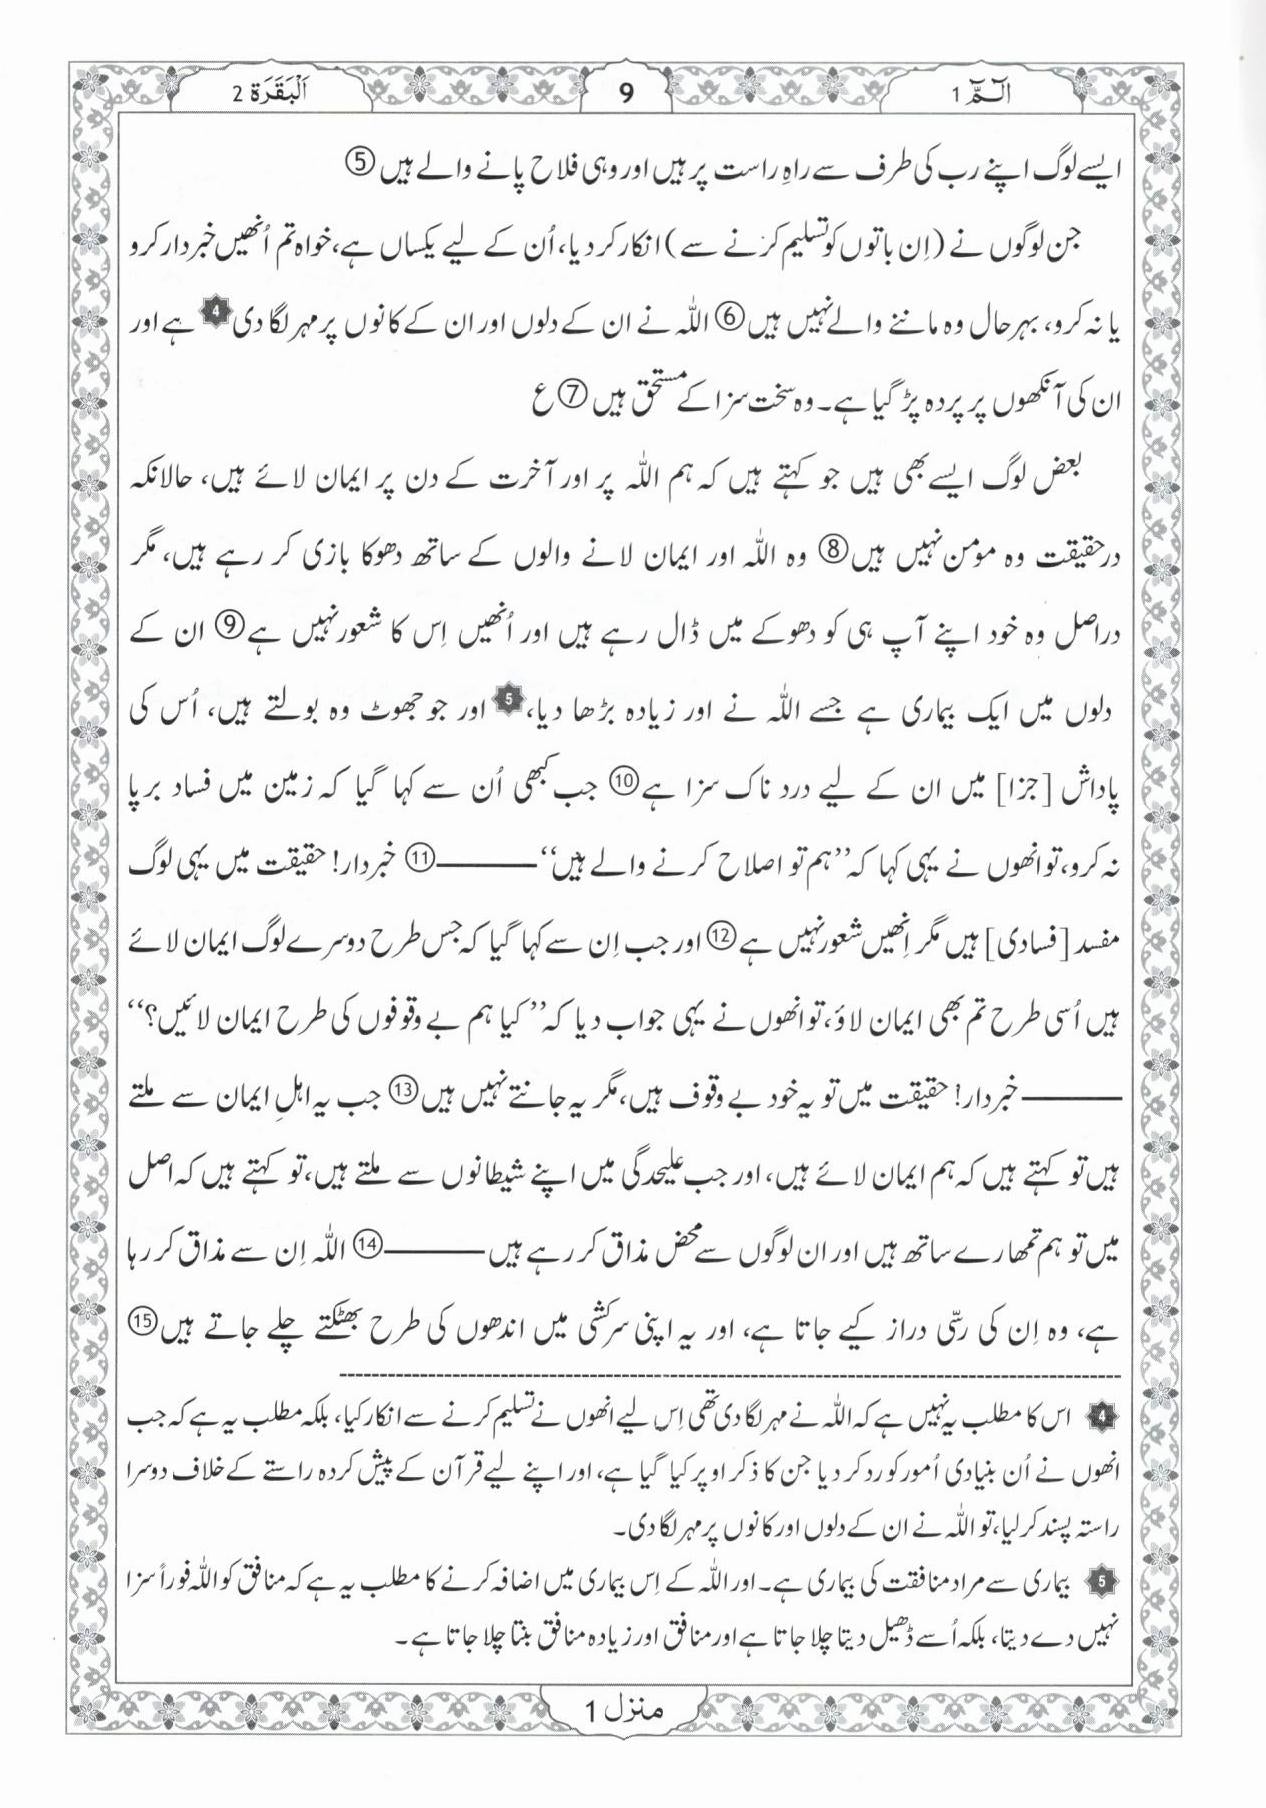 الٓمّٓ 1
9
اَلْبَقَرَة 2
ایسے لوگ اپنے رب کی طرف سے راہِ راست پر ہیں اور وہی فلاح پانے والے ہیں ⑤
جن لوگوں نے (اِن باتوں کو تسلیم کرنے سے) انکار کر دیا، اُن کے لیے یکساں ہے، خواہ تم اُنھیں خبردار کرو
یا نہ کرو، بہرحال وہ ماننے والے نہیں ہیں ⑥ اللہ نے ان کے دلوں اور ان کے کانوں پر مہر لگا دی 4 ہے اور
ان کی آنکھوں پر پردہ پڑ گیا ہے۔ وہ سخت سزا کے مستحق ہیں ⑦ ع
بعض لوگ ایسے بھی ہیں جو کہتے ہیں کہ ہم اللہ پر اور آخرت کے دن پر ایمان لائے ہیں، حالانکہ
درحقیقت وہ مومن نہیں ہیں ⑧ وہ اللہ اور ایمان لانے والوں کے ساتھ دھوکا بازی کر رہے ہیں، مگر
دراصل وہ خود اپنے آپ ہی کو دھوکے میں ڈال رہے ہیں اور اُنھیں اِس کا شعور نہیں ہے ⑨ ان کے
دلوں میں ایک بیماری ہے جسے اللہ نے اور زیادہ بڑھا دیا، 5 اور جو جھوٹ وہ بولتے ہیں، اُس کی
پاداش [جزا] میں ان کے لیے درد ناک سزا ہے ⑩ جب کبھی اُن سے کہا گیا کہ زمین میں فساد برپا
نہ کرو، تو انھوں نے یہی کہا کہ ’’ہم تو اصلاح کرنے والے ہیں‘‘ ——— ⑪ خبردار! حقیقت میں یہی لوگ
مفسد [فسادی] ہیں مگر اِنھیں شعور نہیں ہے ⑫ اور جب اِن سے کہا گیا کہ جس طرح دوسرے لوگ ایمان لائے
ہیں اُسی طرح تم بھی ایمان لاؤ، تو انھوں نے یہی جواب دیا کہ ’’کیا ہم بے وقوفوں کی طرح ایمان لائیں؟‘‘
——— خبردار! حقیقت میں تو یہ خود بے وقوف ہیں، مگر یہ جانتے نہیں ہیں ⑬ جب یہ اہلِ ایمان سے ملتے
ہیں تو کہتے ہیں کہ ہم ایمان لائے ہیں، اور جب علیحدگی میں اپنے شیطانوں سے ملتے ہیں، تو کہتے ہیں کہ اصل
میں تو ہم تمھارے ساتھ ہیں اور ان لوگوں سے محض مذاق کر رہے ہیں ——— ⑭ اللہ اِن سے مذاق کر رہا
ہے، وہ اِن کی رسّی دراز کیے جاتا ہے، اور یہ اپنی سرکشی میں اندھوں کی طرح بھٹکتے چلے جاتے ہیں ⑮
4 اس کا مطلب یہ نہیں ہے کہ اللہ نے مہر لگا دی تھی اِس لیے انھوں نے تسلیم کرنے سے انکار کیا، بلکہ مطلب یہ ہے کہ جب
انھوں نے اُن بنیادی اُمور کو رد کر دیا جن کا ذکر اوپر کیا گیا ہے، اور اپنے لیے قرآن کے پیش کردہ راستے کے خلاف دوسرا
راستہ پسند کر لیا، تو اللہ نے ان کے دلوں اور کانوں پر مہر لگا دی۔
5 بیماری سے مراد منافقت کی بیماری ہے۔ اور اللہ کے اِس بیماری میں اضافہ کرنے کا مطلب یہ ہے کہ منافق کو اللہ فوراً سزا
نہیں دے دیتا، بلکہ اُسے ڈھیل دیتا چلا جاتا ہے اور منافق اور زیادہ منافق بنتا چلا جاتا ہے۔
منزل 1